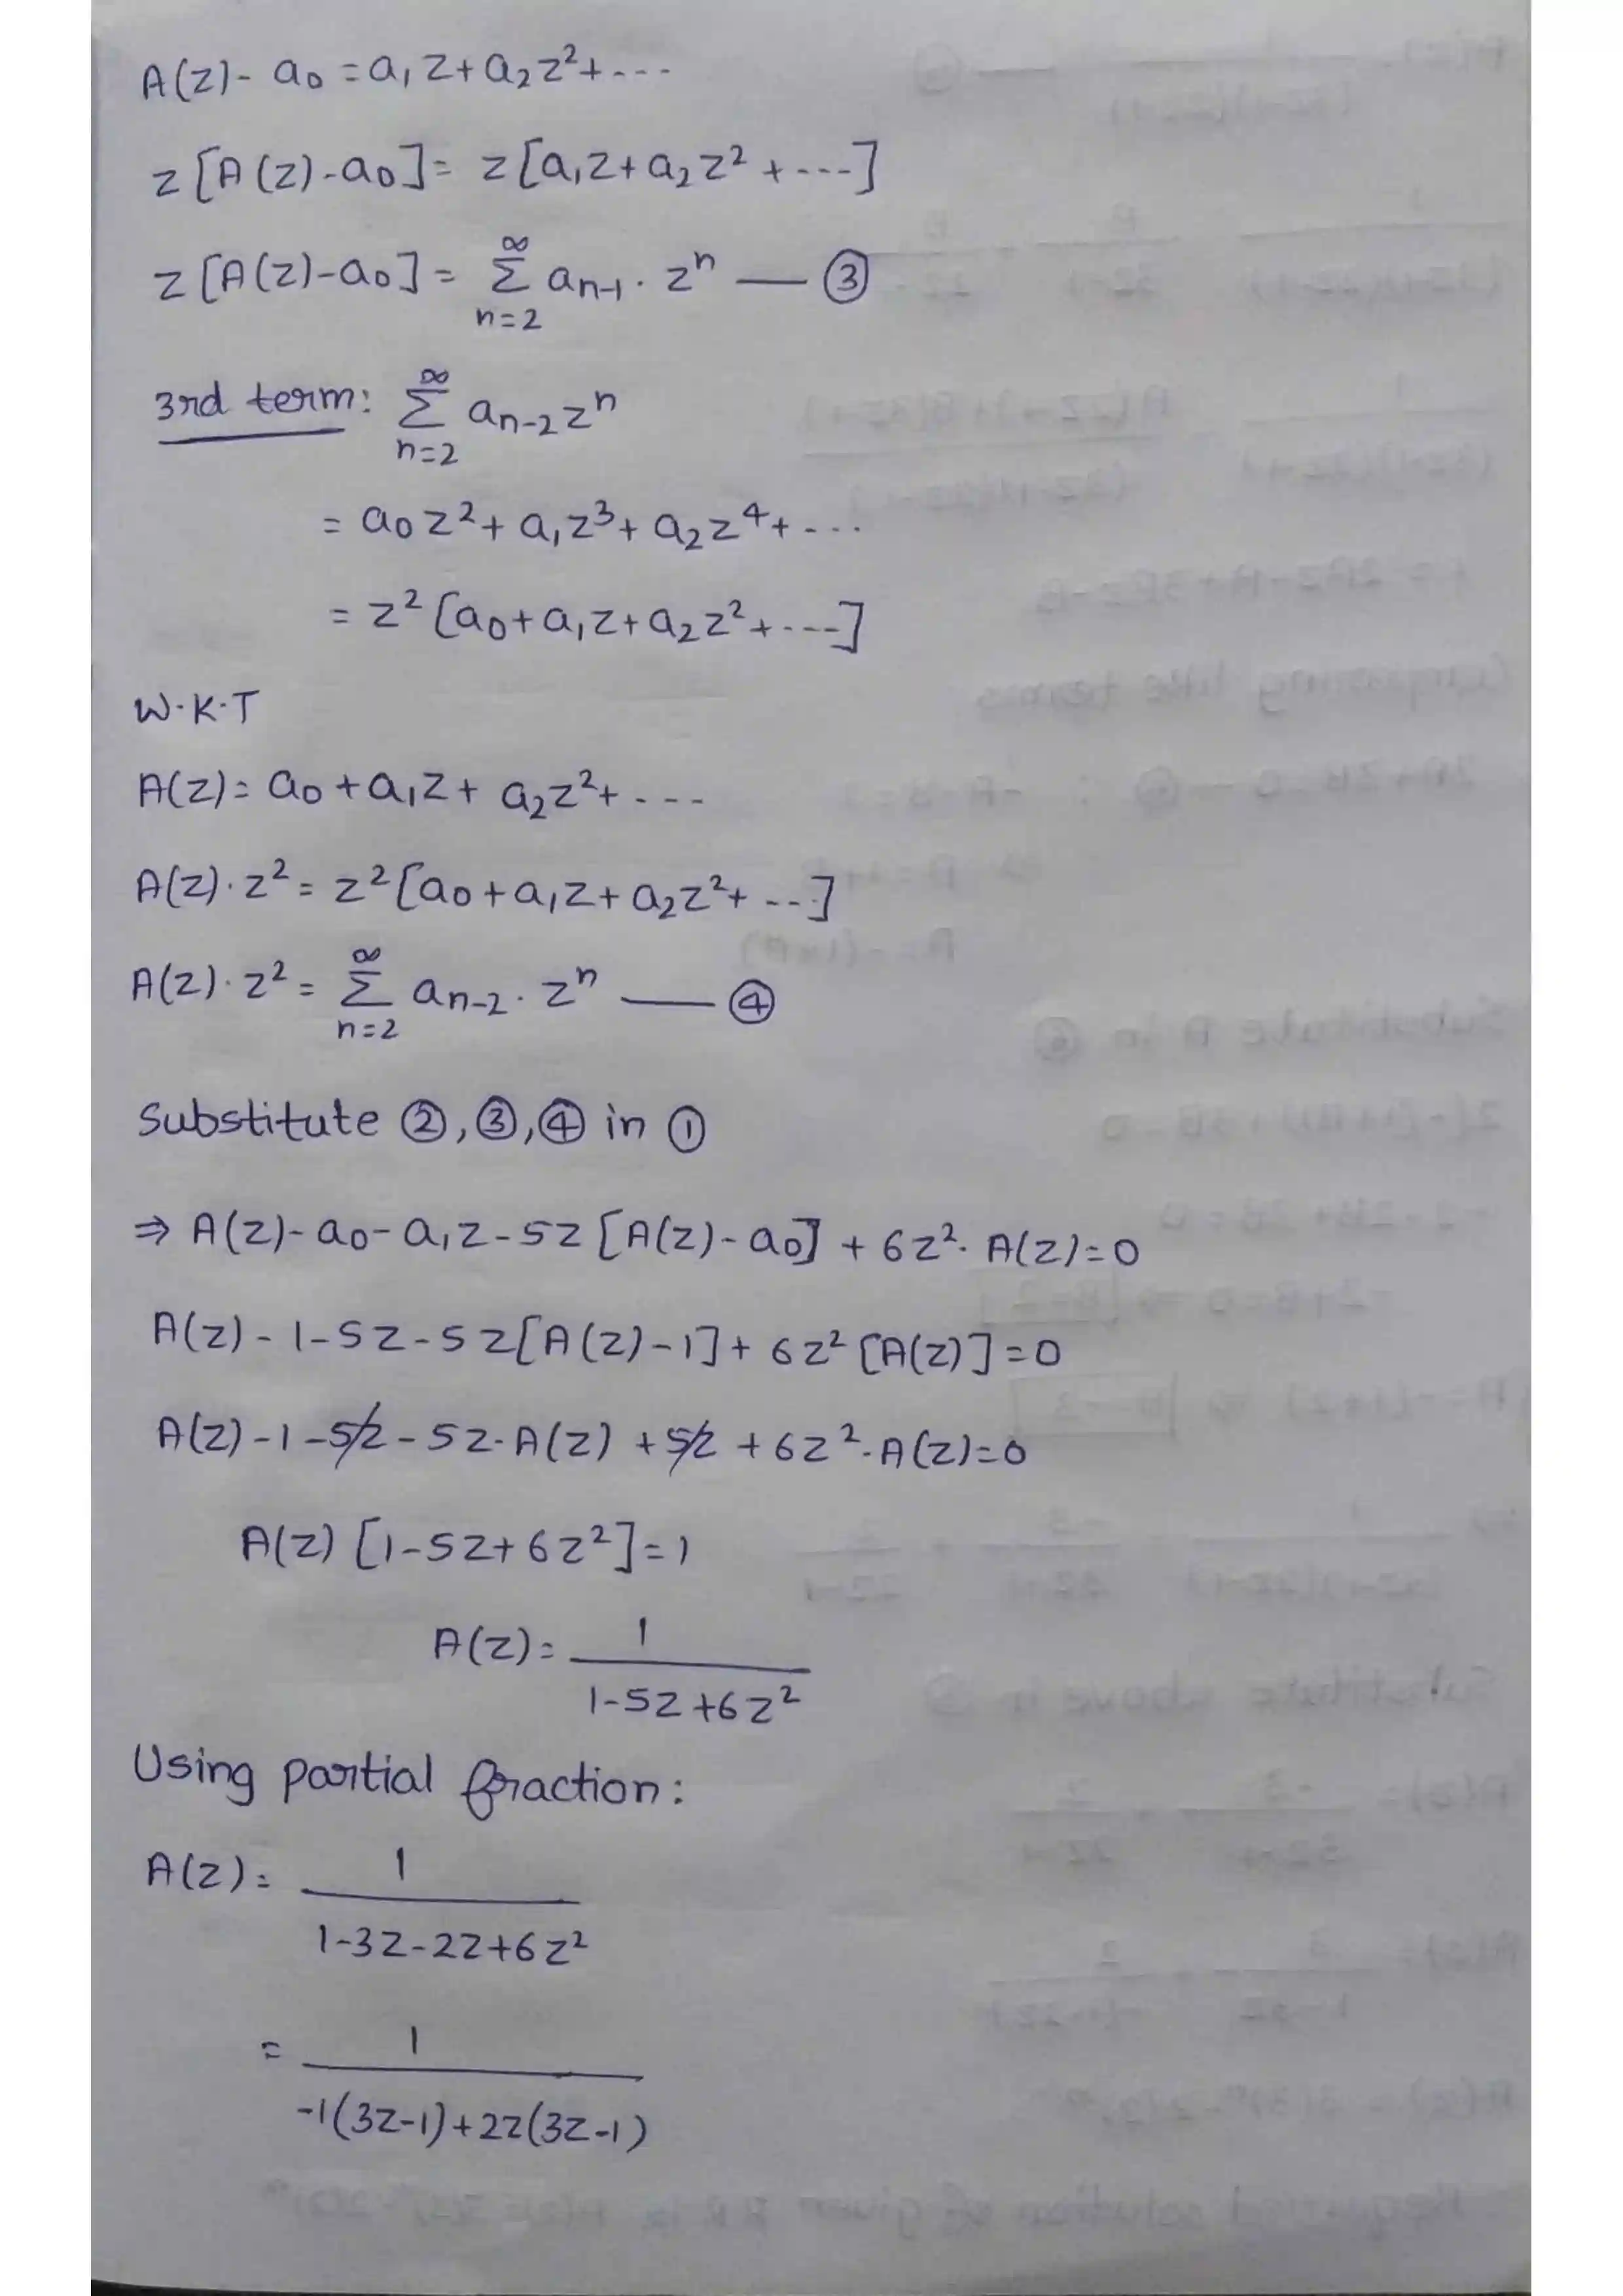 A(z)- a₀ = a₁z+a₂z²+---
z[A(z)-a₀]= z[a₁z+a₂z²+---]
z[A(z)-a₀]= ∞Σn=2 aₙ₋₁ · zⁿ — ③
3rd term: ∞Σn=2 aₙ₋₂zⁿ
= a₀z²+a₁z³+a₂z⁴+---
= z²[a₀+a₁z+a₂z²+---]
W.K.T
A(z)= a₀+a₁z+a₂z²+---
A(z)·z²= z²[a₀+a₁z+a₂z²+---]
A(z)·z²= ∞Σn=2 aₙ₋₂ · zⁿ — ④
Substitute ②,③,④ in ①
⇒ A(z)-a₀-a₁z-5z[A(z)-a₀]+6z²·A(z)=0
A(z)-1-5z-5z[A(z)-1]+6z²[A(z)]=0
A(z)-1-5z-5z·A(z)+5z+6z²·A(z)=0
A(z)[1-5z+6z²]=1
A(z)= 1/1-5z+6z²
Using partial fraction:
A(z)= 1/1-3z-2z+6z²
= 1/-1(3z-1)+2z(3z-1)